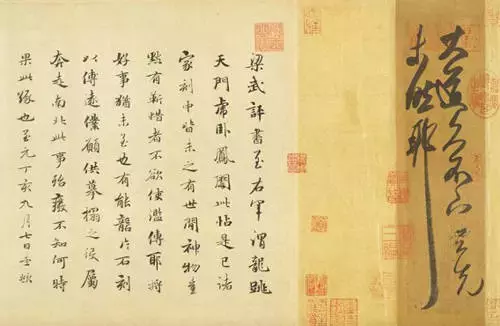 大道久不下與先
未然耶
梁武評書至右軍謂龍跳
天門虎臥鳳闕此帖是已諸
家刻中皆未之有世間神物豈
默有靳惜者不欲使濫傳耶將
好事猶未至也有能礱片石刻
以傳遠僕願供摹搨之役屬
奔走南北此事殆廢不知何時
果此緣也至元丁亥九月七日孟頫